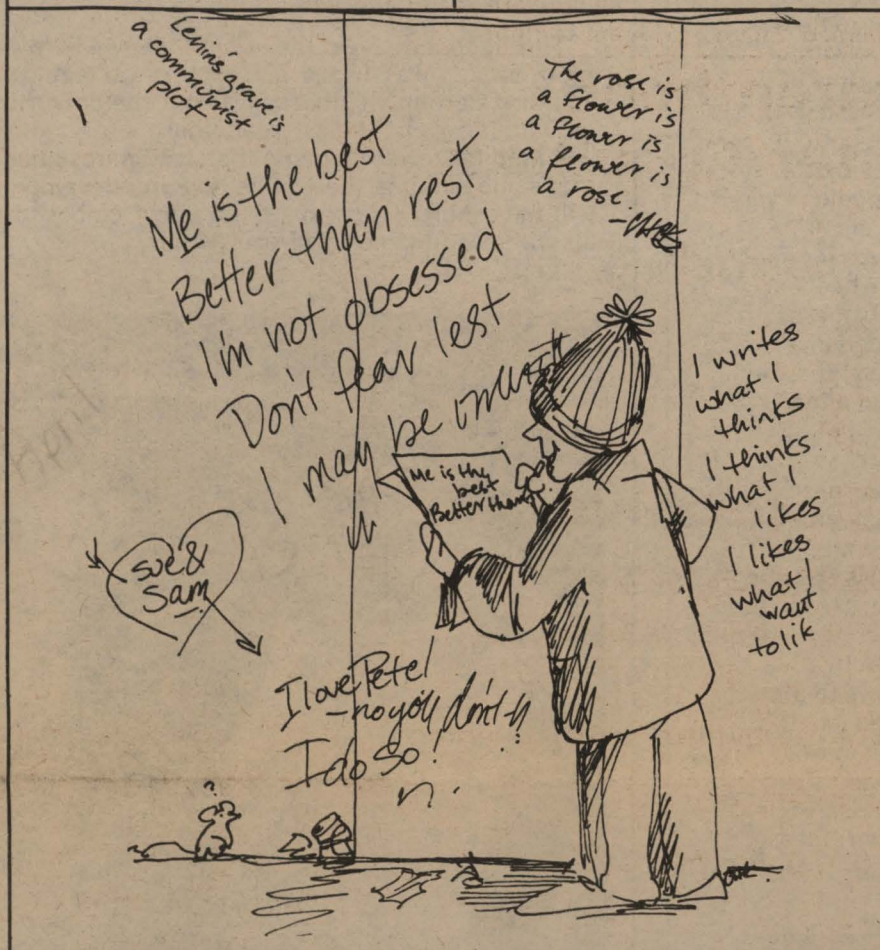 Lenin's grave is
a communist
plot
The rose is
a flower is
a flower is
a flower is
a rose
Me is the best
Better than rest
I'm not obsessed
Don't fear lest
I may be
Me is the
best
Better than
I writes
what I
thinks
I thinks
what I
likes
I likes
what I
want
to lik
Sue &
Sam
I love Pete!
- no you don't
I do so!
?
April